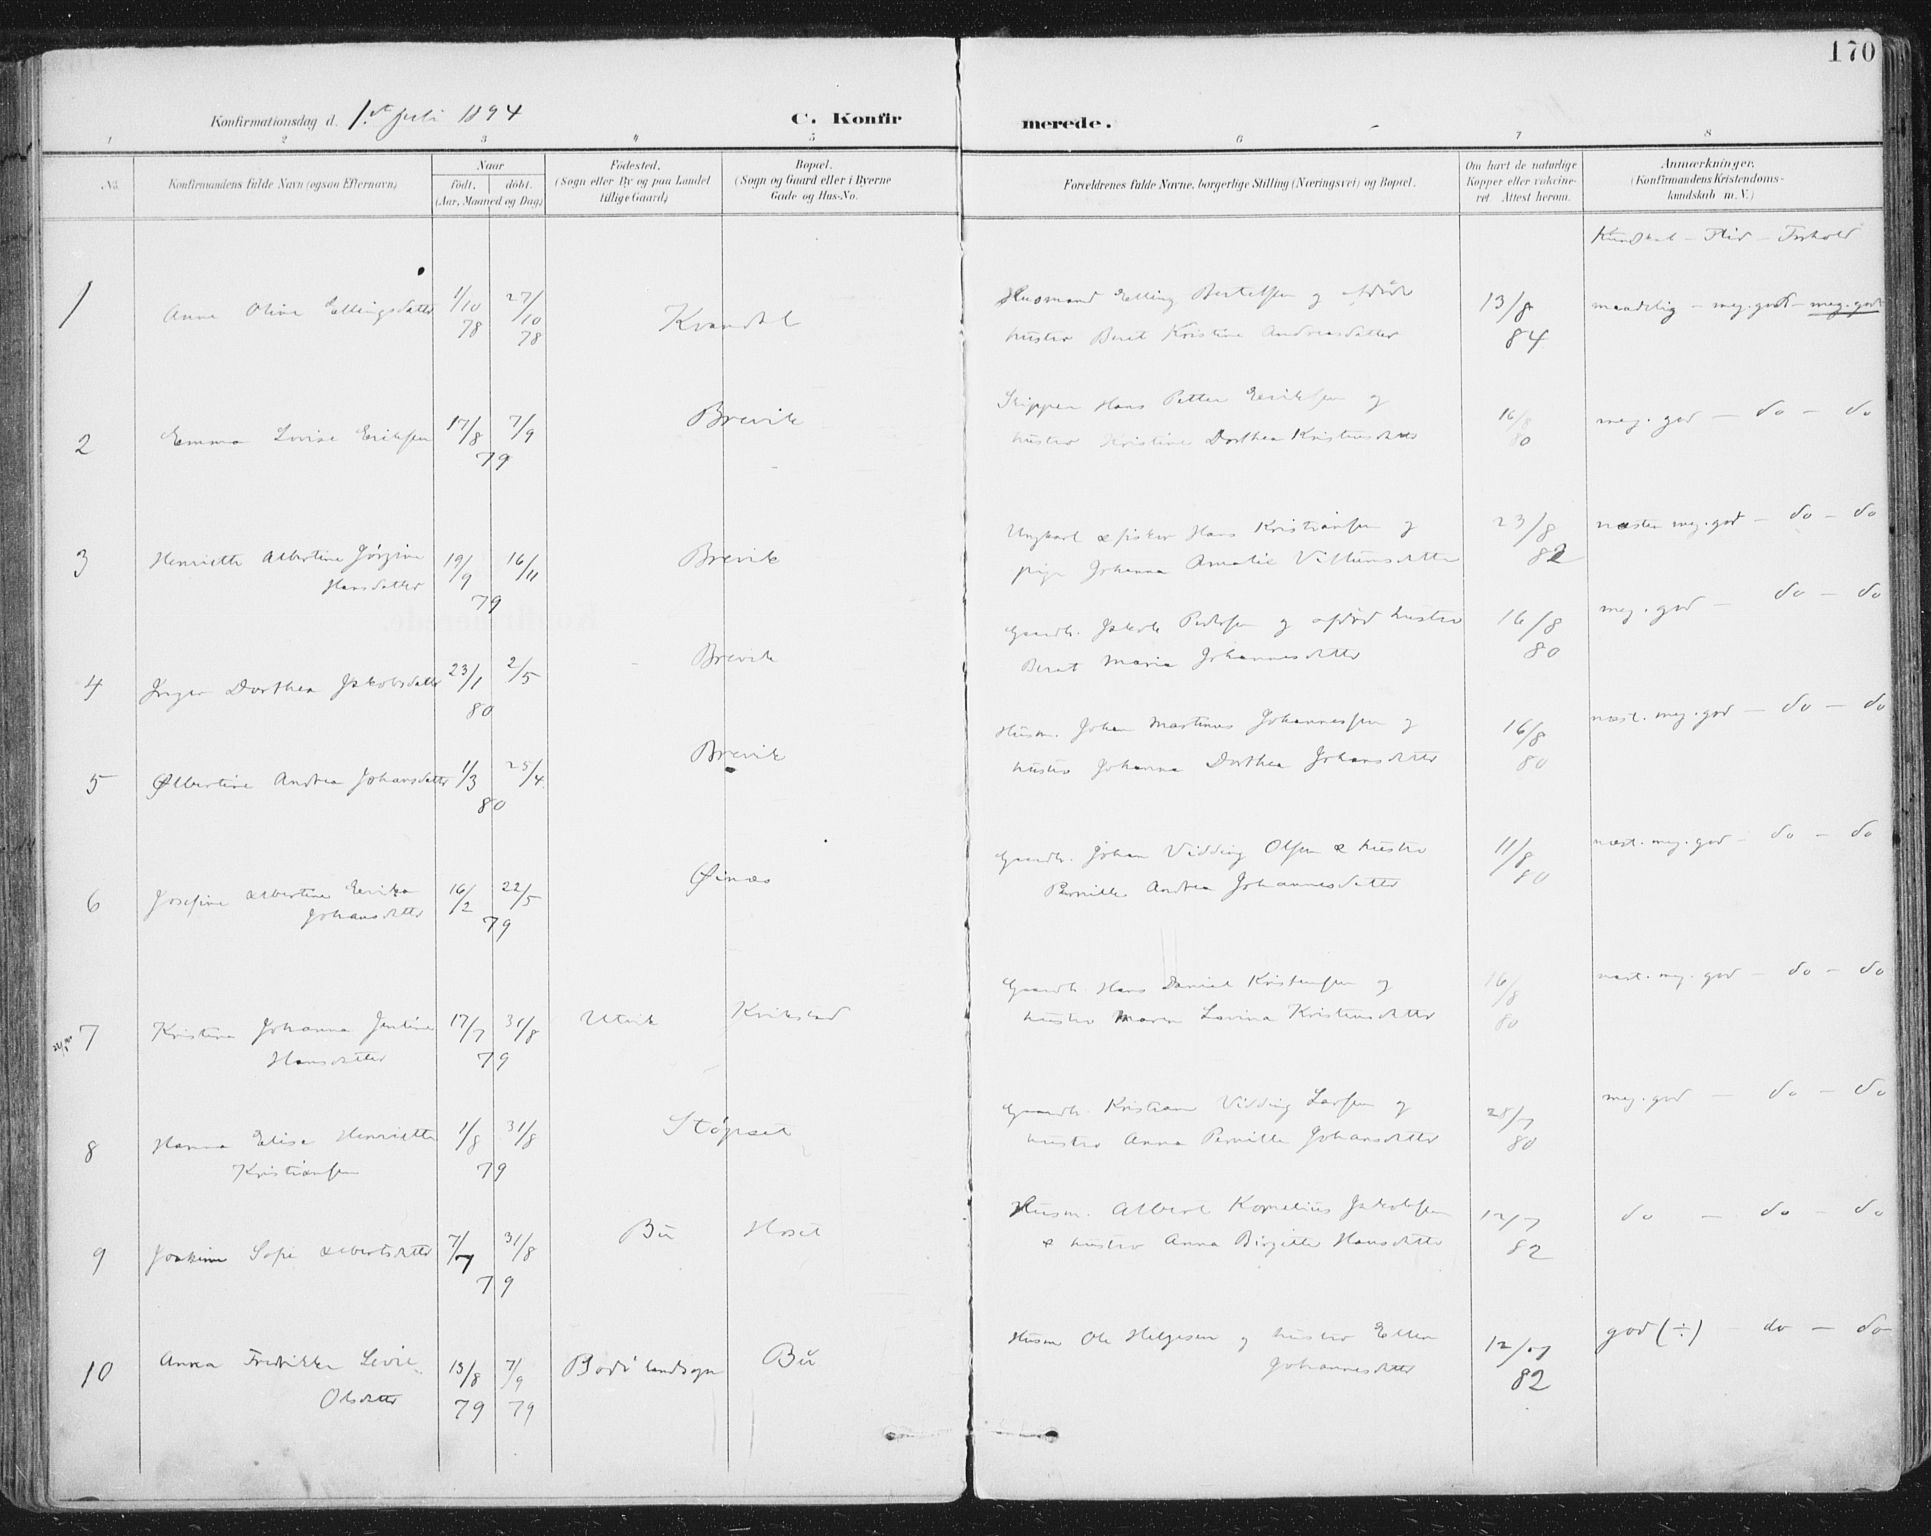 170
Konfirmationsdag d. 1st Juli 1894
C. Konfirmerede.
1 2 3 4 5 6 7 8
No. Konfirmandens fulde Navn (ogsaa Efternavn)
Naar født. døbt. (Aar, Maaned og Dag)
Fødested. (Sogn eller By og paa Landet tillige Gaard)
Bopæl. (Sogn og Gaard eller i Byerne Gade og Hus-No.
Forældrenes fulde Navne, borgerlige Stilling (Næringsvei) og Bopæl.
Om havt de naturlige Kopper eller vakcineret. Attest herom.
Anmærkninger. (Konfirmandens Kristendomskundskab m. V.)
Kundskab – Flid – Forhold
1 Anne Oline Ellingsdatter 1/10 78 27/10 78 Kvandal
Husmand Elling Bertelsen og afdøde
hustro Berit Kristine Andreasdatter
13/8 84 maadelig – meg. godt – meg. godt
2 Emma Lovise Eriksen 17/8 7/9 79 Brevik
Skipper Hans Petter Eeriksen og
hustro Kristine Dorthea Kristensdatter
16/8 80 meg. god – do – do
3 Henriette Albertine Jørgine
Hansdatter 19/9 16/11 79 Brevik
Ungkarl & fisker Hans Kristiansen og
pige Johanna Amalie Villumsdatter
23/8 82 næsten meg. god – do – do
4 Inger Dorthea Jakobsdatter 23/1 2/5 80 Brevik
Gaardb. Jakob Pedersen og afdød hustro
Berit Maria Johannesdatter
16/8 80 meg. god – do – do
5 Olbertine Andrea Johansdatter 1/3 25/4 80 Brevik
Husm. Johan Martinus Johannessen og
hustro Johanna Dorthea Johansdatter
16/8 80 næst. meg. god – do – do
6 Josefine Albertine Eerika
Johansdatter 16/2 22/5 79 Øinæs
Gaardb. Johan Vidding Olsen & hustro
Pernille Andrea Johannesdatter
11/8 80 næst. meg. god – do – do
7 Kristine Johanna Jentine
Hansdatter 17/7 31/8 79 Utvik Kvikstad
Gaardb. Hans Daniel Kristensen og
hustro Maren Lovina Kristensdatter
16/8 80 næst. meg. god – do – do
8 Hanna Elise Henriette
Kristiansen 1/8 31/8 79 Støpset
Gaardb. Kristian Vidding Larsen og
hustro Anna Pernille Johansdatter
28/7 80 meg. god – do – do
9 Joakime Sofie Albertsdatter 7/7 31/8 79 Bø Hoset
Husm. Albert Kornelius Jakobsen
& hustro Anna Birgitte Hansdatter
12/7 82 do – do – do
10 Anna Fredrikke Levie
Olsdatter 13/8 79 7/9 79 Bodø landsogn Bø
Husm Ole Helgesen og hustro Ellen
Johannesdatter
12/07 82 god (÷) – do – do